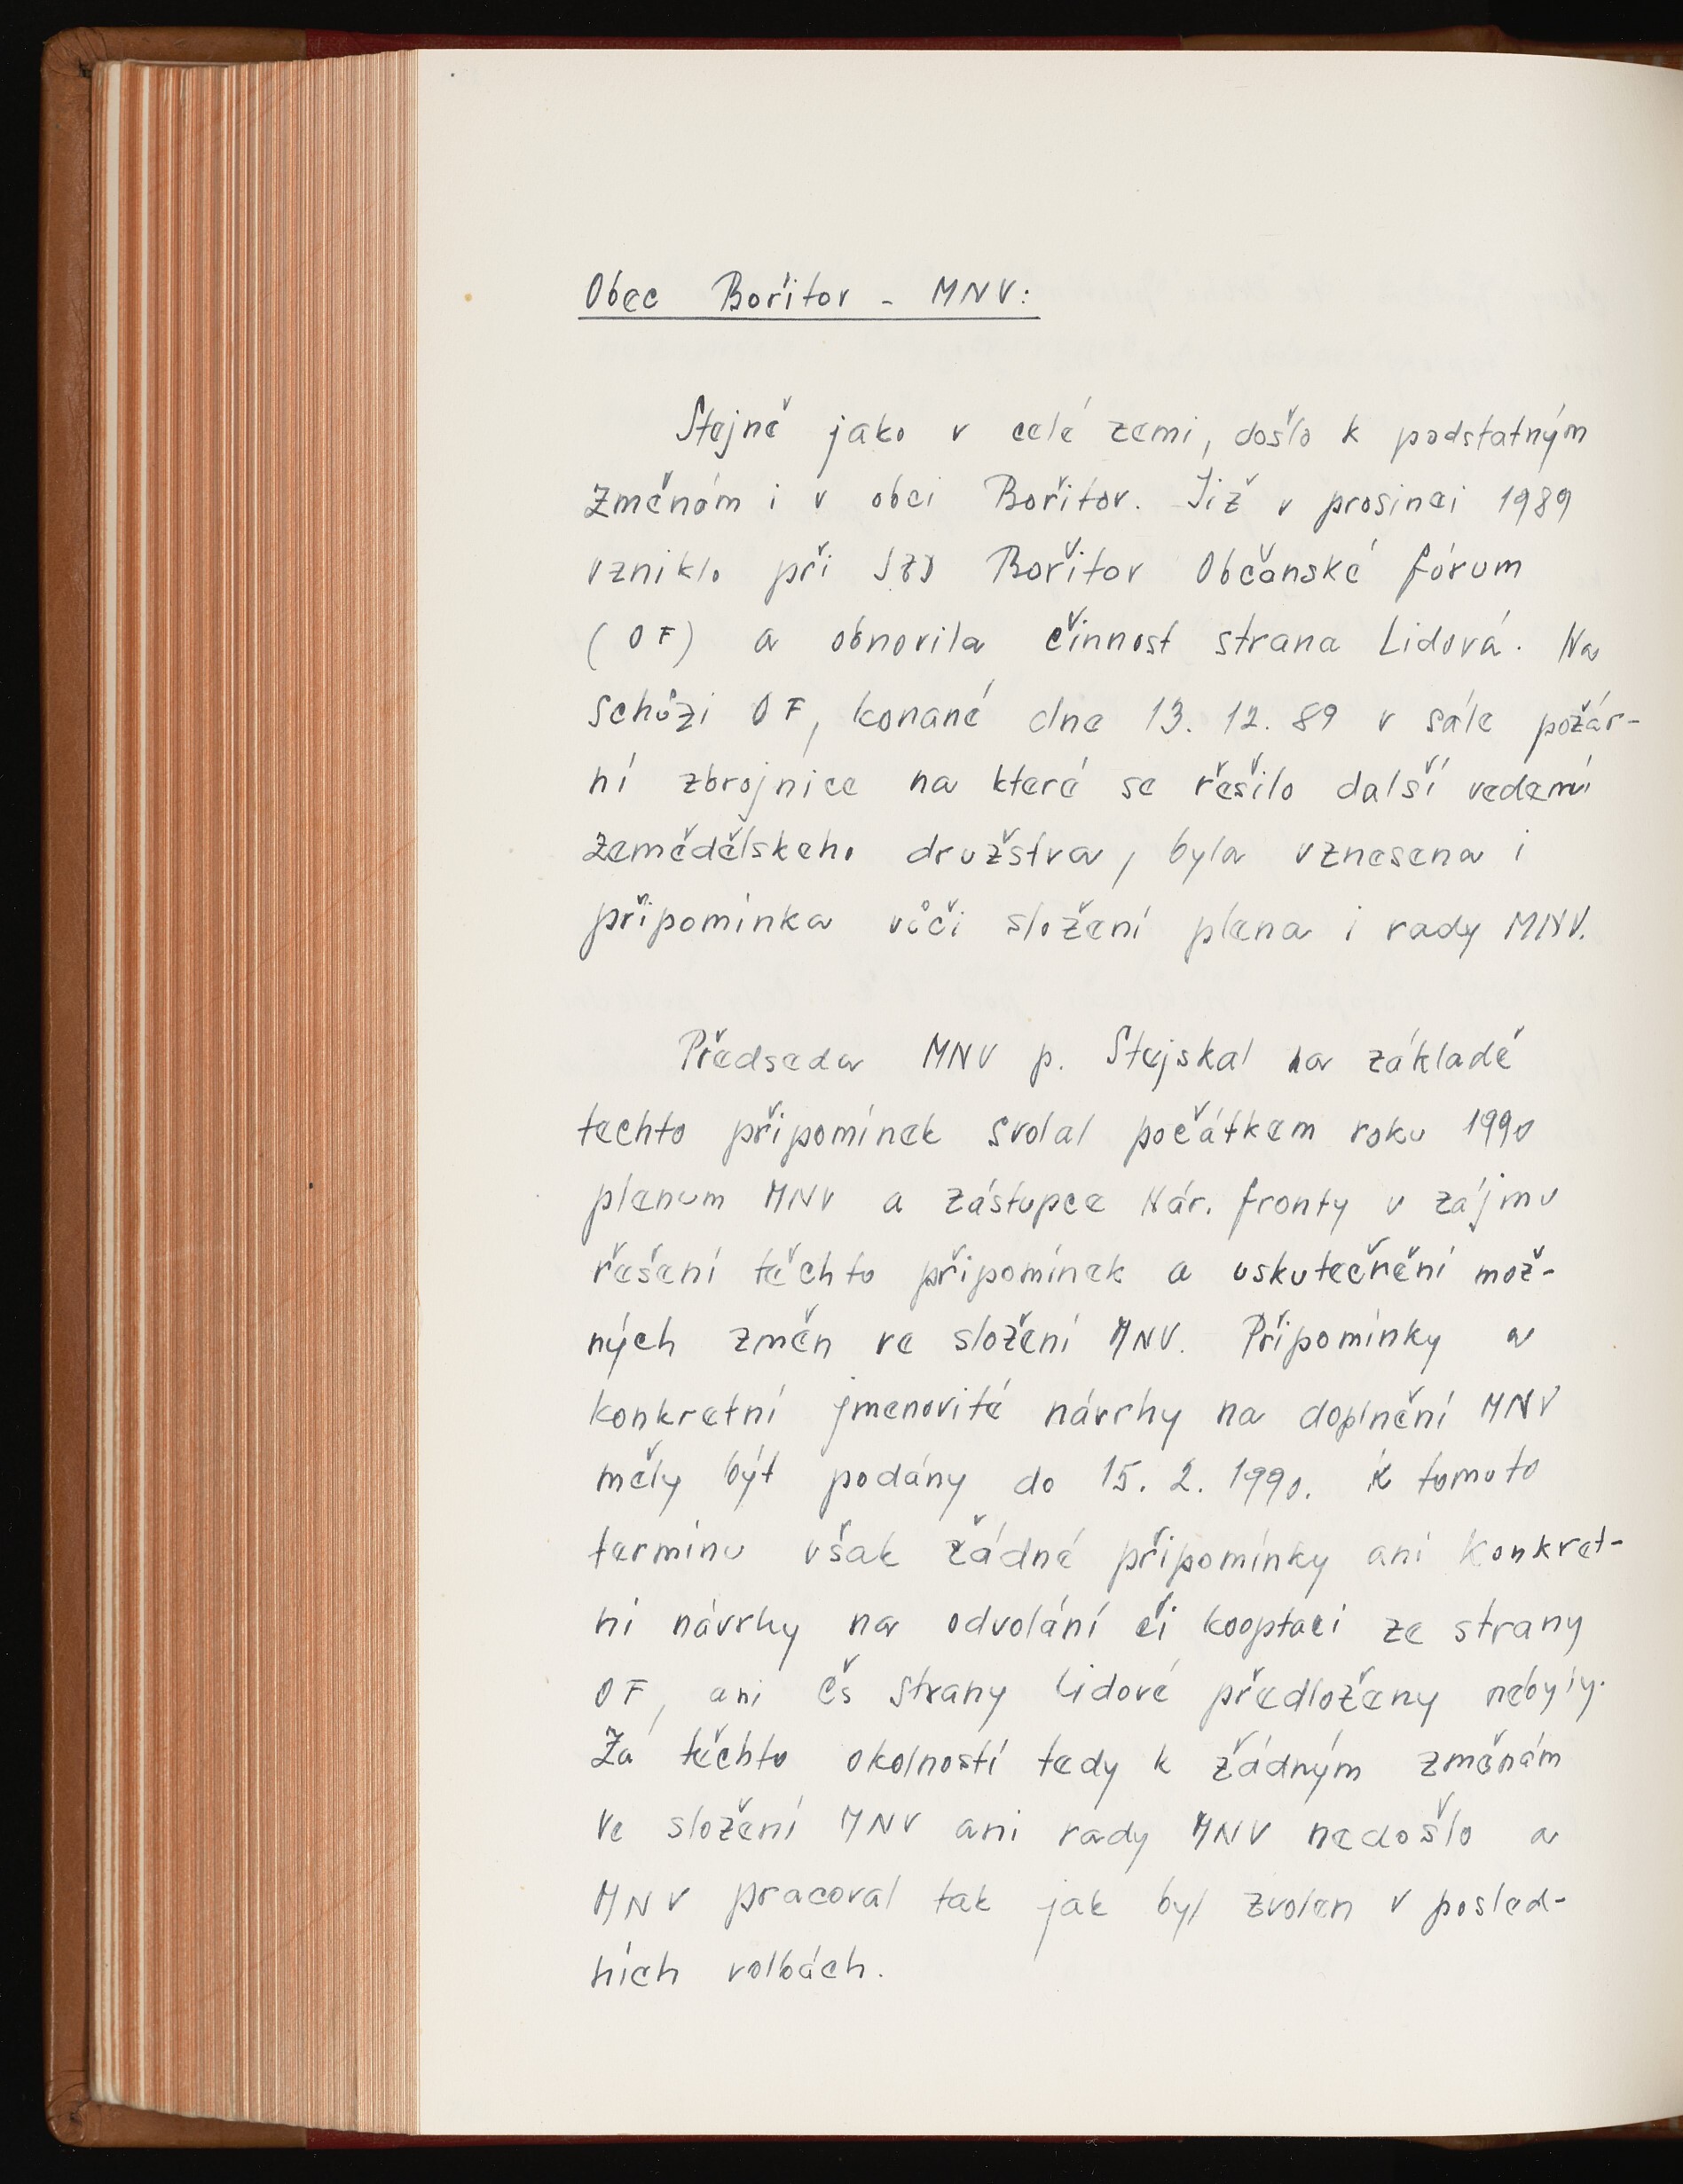 Obec Bořitov - MNV:
Stejně jako v celé zemi, došlo k podstatným
změnám i v obci Bořitov. Již v prosinci 1989
vzniklo při JZD Bořitov Občanské fórum
(OF) a obnovila činnost strana Lidová. Na
schůzi OF, konané dne 13. 12. 89 v sále požár-
ní zbrojnice na které se řešilo další vedení
zemědělskeho družstva, byla vznesena i
připomínka vůči složení plena i rady MNV.
Předseda MNV p. Stejskal na základě
techto připomínek svolal počátkem roku 1990
plenum MNV a zástupce Nár. fronty v zájmu
řešení těchto připomínek a uskutečnění mož-
ných změn ve složení MNV. Připomínky a
konkretní jmenovité návrhy na doplnění MNV
měly být podány do 15. 2. 1990. K tomuto
termínu však žádné připomínky ani konkret-
ní návrhy na odvolání či kooptaci ze strany
OF, ani čs strany Lidové předloženy nebyly.
Za těchto okolností tedy k žádným změnám
ve složení MNV ani rady MNV nedošlo a
MNV pracoval tak jak byl zvolen v posled-
ních volbách.